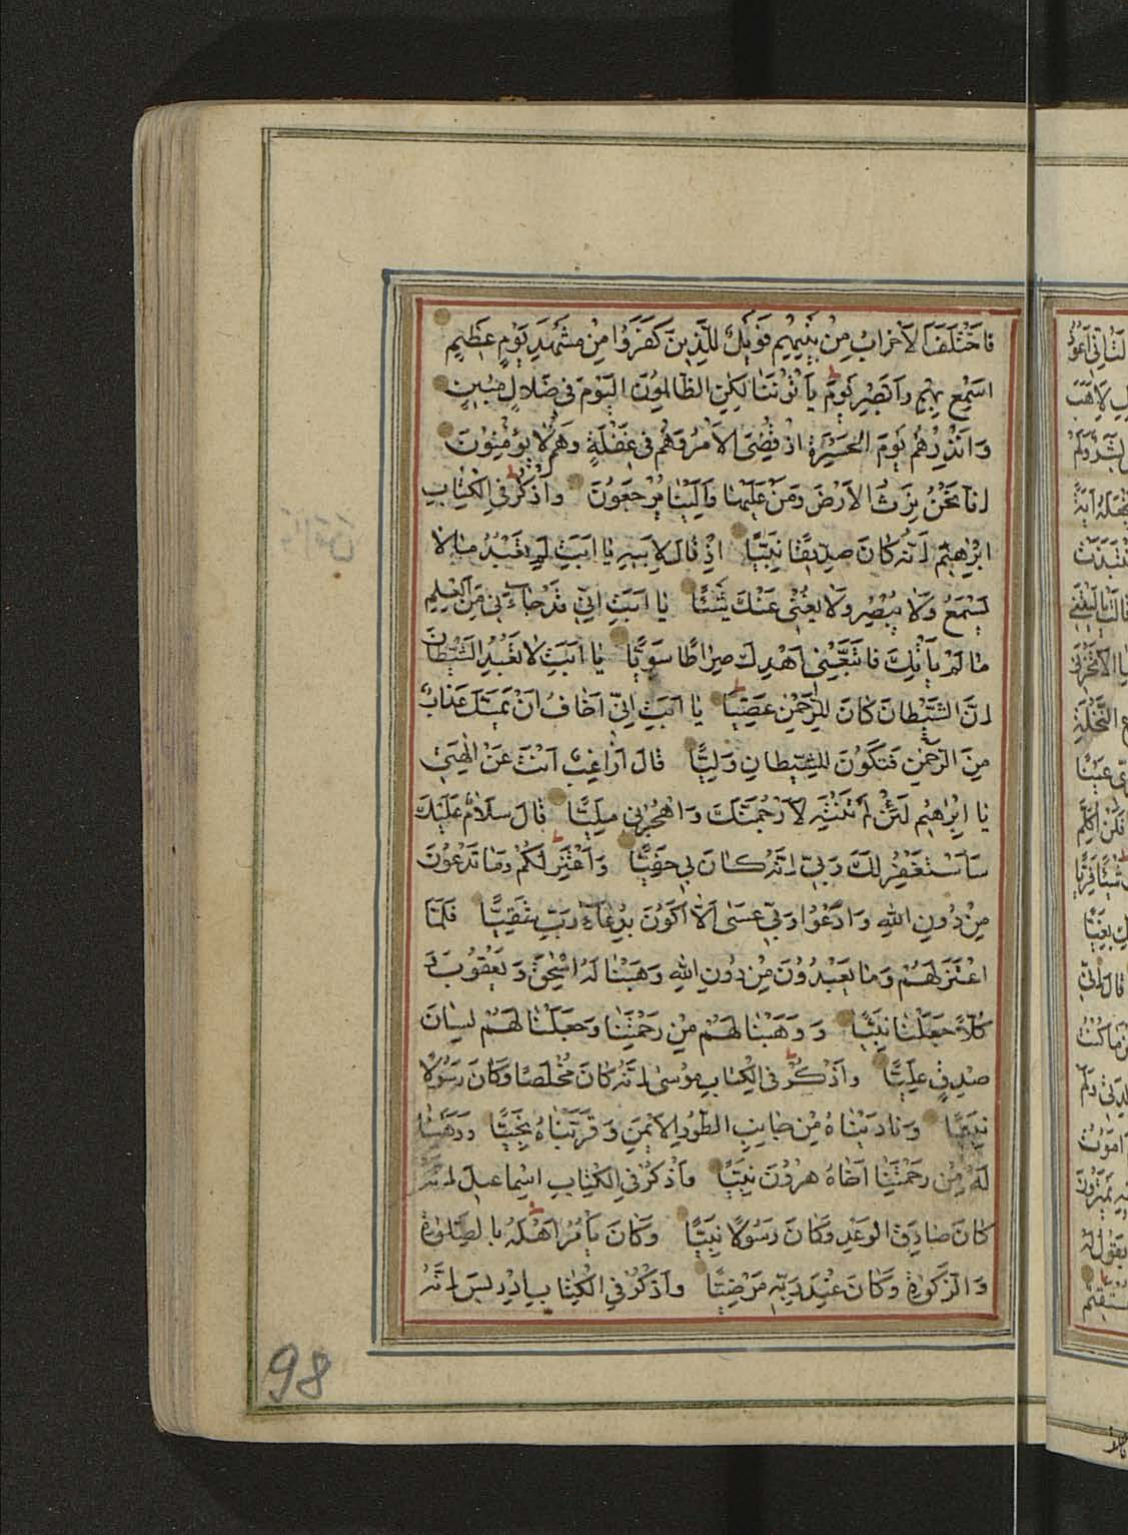 فَاخْتَلَفَ الْاَحْزَابُ مِنْ بَيْنِهِمْ فَوَيْلٌ لِلَّذِينَ كَفَرُوا مِنْ مَشْهَدِ يَوْمٍ عَظِيمٍ
اَسْمِعْ بِهِمْ وَاَبْصِرْ يَوْمَ يَاْتُونَنَا لٰكِنِ الظَّالِمُونَ الْيَوْمَ فِي ضَلَالٍ مُبِينٍ
وَاَنْذِرْهُمْ يَوْمَ الْحَسْرَةِ اِذْ قُضِيَ الْاَمْرُ وَهُمْ فِي غَفْلَةٍ وَهُمْ لَا يُؤْمِنُونَ
اِنَّا نَحْنُ نَرِثُ الْاَرْضَ وَمَنْ عَلَيْهَا وَاِلَيْنَا يُرْجَعُونَ وَاذْكُرْ فِي الْكِتَابِ
اِبْرٰهِيمَ اِنَّهُ كَانَ صِدِّيقًا نَبِيًّا اِذْ قَالَ لِاَبِيهِ يَا اَبَتِ لِمَ تَعْبُدُ مَا لَا
يَسْمَعُ وَلَا يُبْصِرُ وَلَا يُغْنِي عَنْكَ شَيْئًا يَا اَبَتِ اِنِّي قَدْ جَاءَنِي مِنَ الْعِلْمِ
مَا لَمْ يَاْتِكَ فَاتَّبِعْنِي اَهْدِكَ صِرَاطًا سَوِيًّا يَا اَبَتِ لَا تَعْبُدِ الشَّيْطَانَ
اِنَّ الشَّيْطَانَ كَانَ لِلرَّحْمٰنِ عَصِيًّا يَا اَبَتِ اِنِّي اَخَافُ اَنْ يَمَسَّكَ عَذَابٌ
مِنَ الرَّحْمٰنِ فَتَكُونَ لِلشَّيْطَانِ وَلِيًّا قَالَ اَرَاغِبٌ اَنْتَ عَنْ اٰلِهَتِي
يَا اِبْرٰهِيمُ لَئِنْ لَمْ تَنْتَهِ لَاَرْجُمَنَّكَ وَاهْجُرْنِي مَلِيًّا قَالَ سَلَامٌ عَلَيْكَ
سَاَسْتَغْفِرُ لَكَ رَبِّي اِنَّهُ كَانَ بِي حَفِيًّا وَاَعْتَزِلُكُمْ وَمَا تَدْعُونَ
مِنْ دُونِ اللّٰهِ وَاَدْعُوا رَبِّي عَسٰى اَلَّا اَكُونَ بِدُعَاءِ رَبِّي شَقِيًّا فَلَمَّا
اعْتَزَلَهُمْ وَمَا يَعْبُدُونَ مِنْ دُونِ اللّٰهِ وَهَبْنَا لَهُ اِسْحٰقَ وَيَعْقُوبَ وَ
كُلًّا جَعَلْنَا نَبِيًّا وَوَهَبْنَا لَهُمْ مِنْ رَحْمَتِنَا وَجَعَلْنَا لَهُمْ لِسَانَ
صِدْقٍ عَلِيًّا وَاذْكُرْ فِي الْكِتَابِ مُوسٰى اِنَّهُ كَانَ مُخْلَصًا وَكَانَ رَسُولًا
نَبِيًّا وَنَادَيْنَاهُ مِنْ جَانِبِ الطُّورِ الْاَيْمَنِ وَقَرَّبْنَاهُ نَجِيًّا وَوَهَبْنَا
لَهُ مِنْ رَحْمَتِنَا اَخَاهُ هٰرُونَ نَبِيًّا وَاذْكُرْ فِي الْكِتَابِ اِسْمَاعِيلَ اِنَّهُ
كَانَ صَادِقَ الْوَعْدِ وَكَانَ رَسُولًا نَبِيًّا وَكَانَ يَاْمُرُ اَهْلَهُ بِالصَّلٰوةِ
وَالزَّكٰوةِ وَكَانَ عِنْدَ رَبِّهِ مَرْضِيًّا وَاذْكُرْ فِي الْكِتَابِ اِدْرِيسَ اِنَّهُ
98